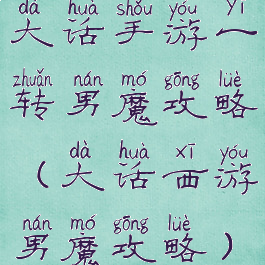 dà huà shǒu yóu yī
大话手游一
zhuǎn nán mó gōng lüè
转男魔攻略
dà huà xī yóu
（大话西游
nán mó gōng lüè
男魔攻略）